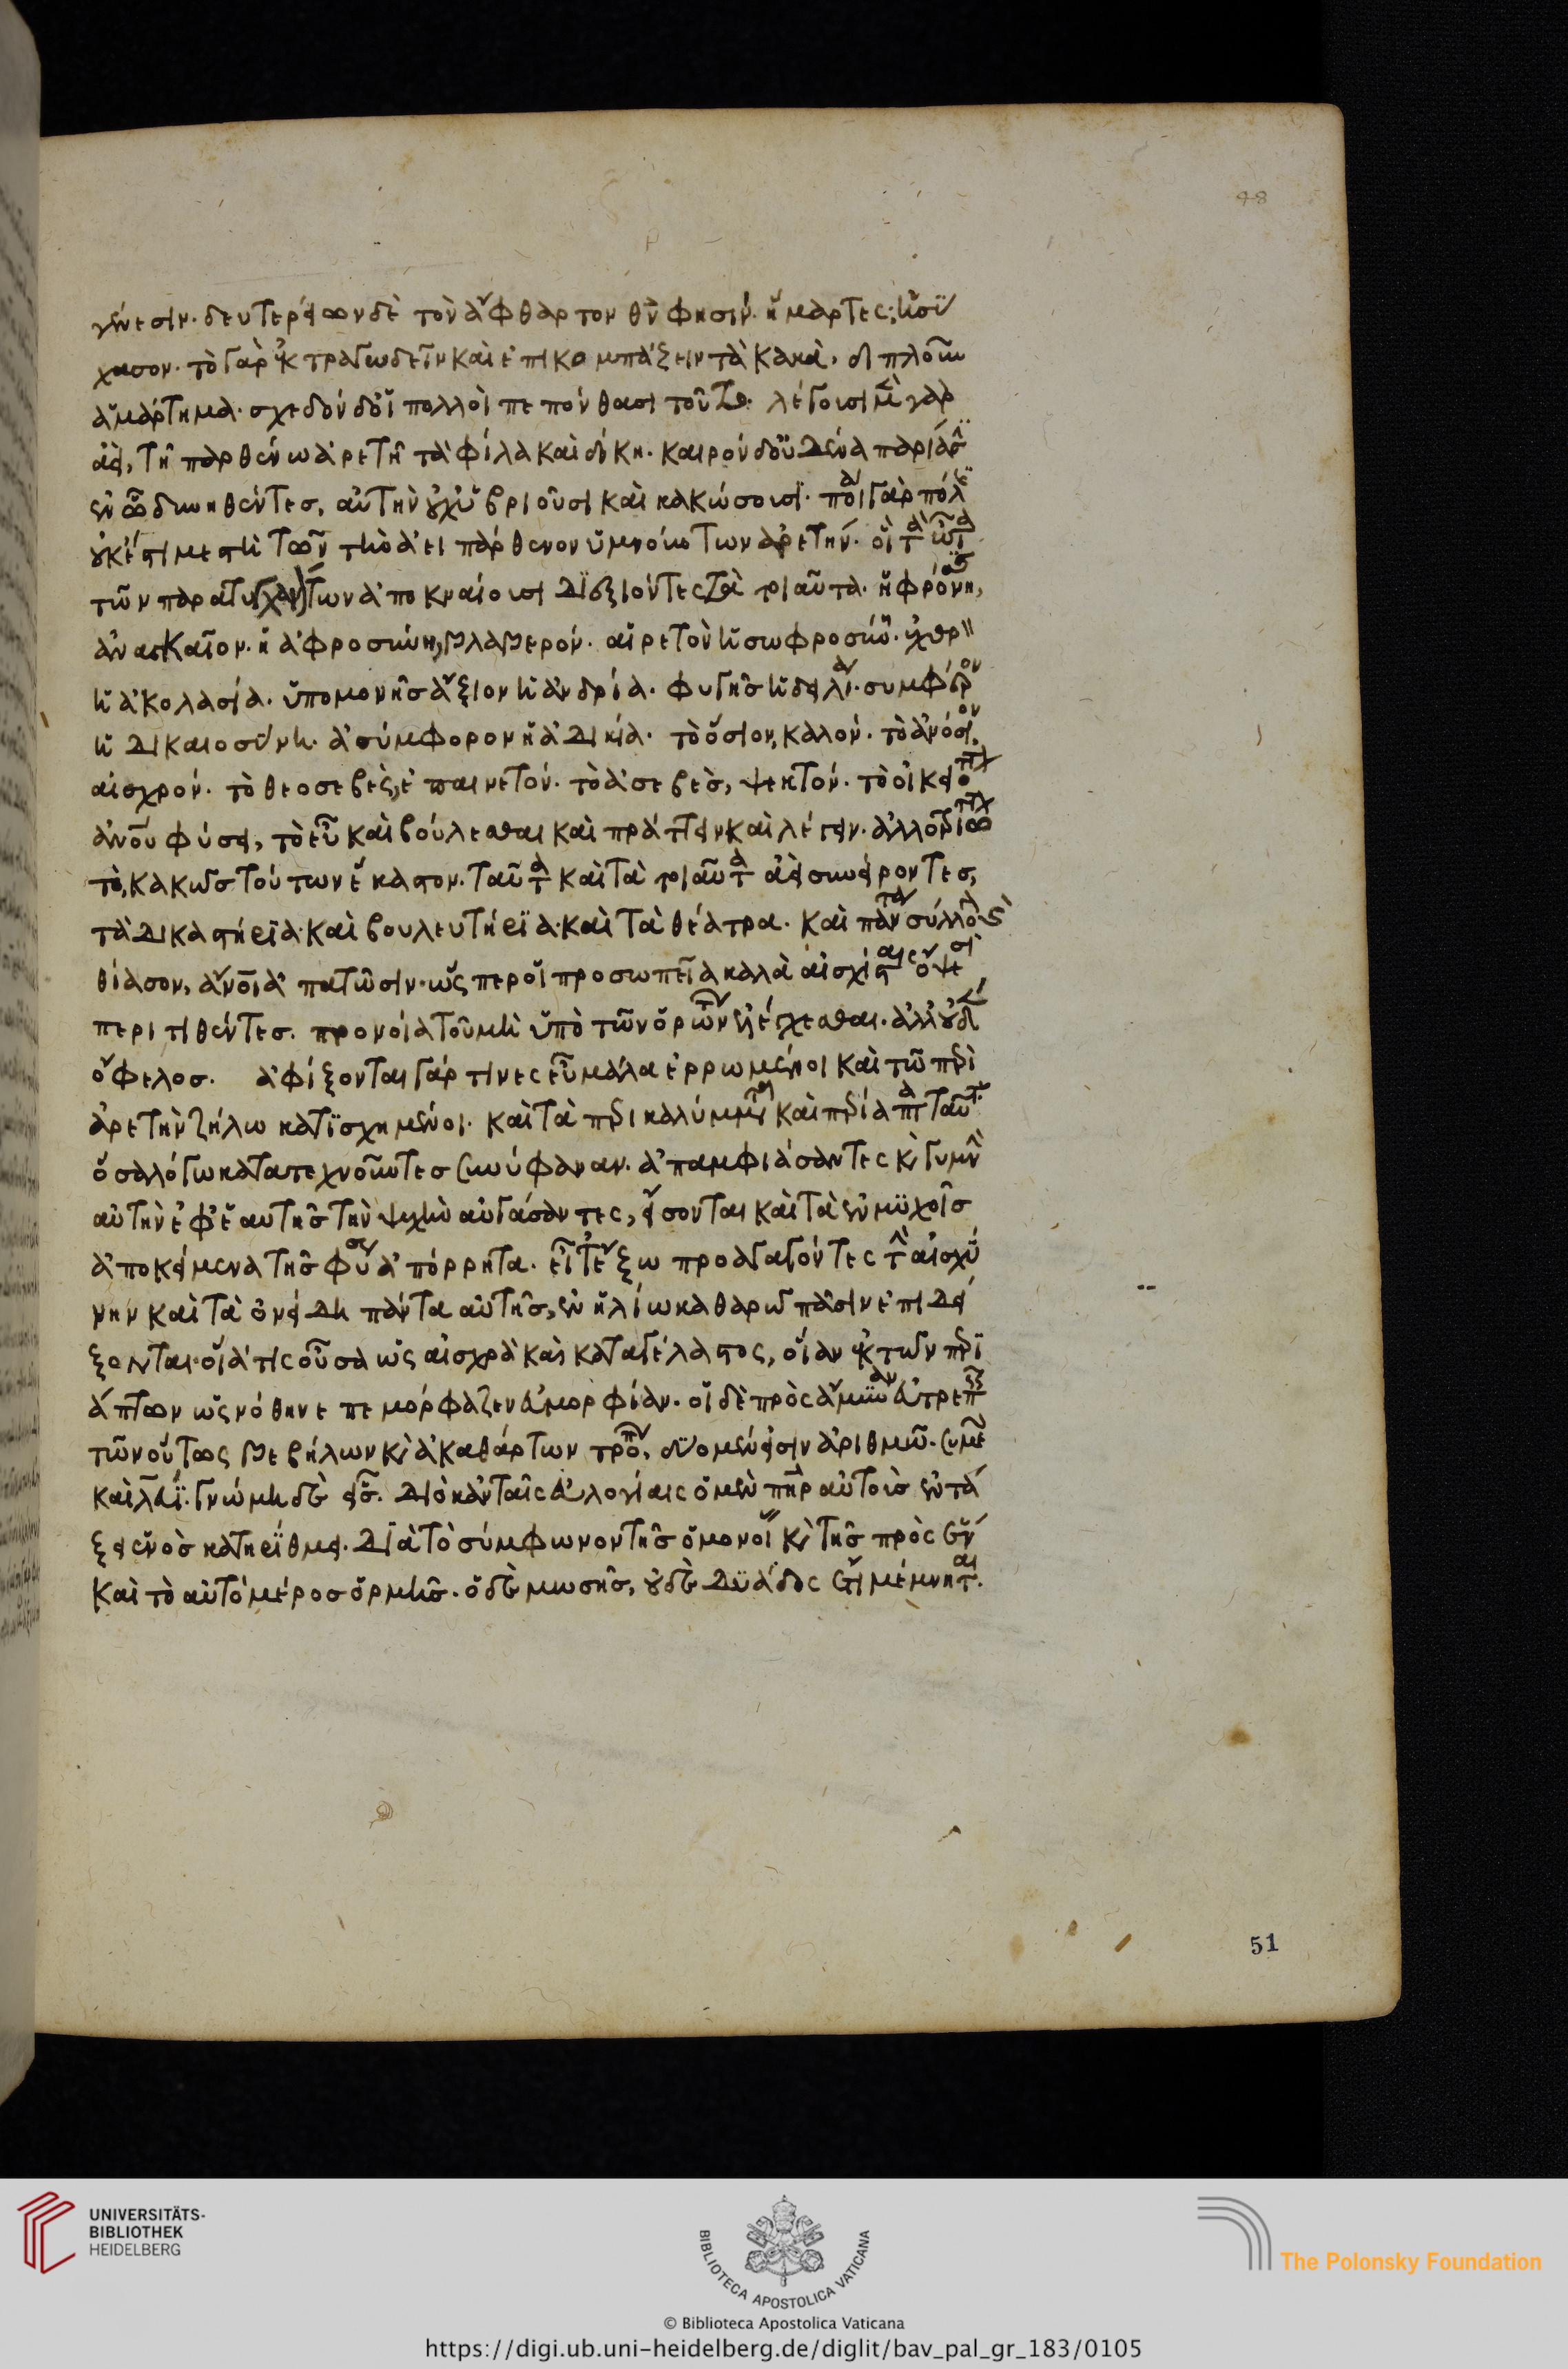 48
γένεσιν· δευτερεῖον δὲ τὸν ἄφθαρτον θν φησίν· ἥμαρτες; ἡσύ
χασον· τὸ γὰρ ἐκτραγωδεῖν καὶ ἐπικομπάζειν τὰ κακὰ· διπλοῦν
ἁμάρτημα· σχεδὸν δ οἱ πολλοὶ πεπόνθασι τοῦτο· λέγουσι μὲν γὰρ
ἀεὶ, τῆ παρθένω ἀρετῆ τὰ φίλα καὶ δίκη· καιρὸν δ οὐδένα παριᾶσιν
αὐτὴν οὐχ ὑβριοῦσι καὶ κακώσουσι·
οὐκέτι μεστὴ τῶν τὴν ἀεὶ πάρθενον ὑμνούντων ἀρετήν·
τῶν παρατυγχανόντων ἀποκναίουσι διεξιόντες τὰ τοιαῦτα· ἡ φρόνησις,
ἀναγκαῖον· ἡ ἀφροσύνη, βλαβερόν· αἱρετὸν ἡ σωφροσύνη· ἐχθρὸν
ἡ ἀκολασία· ὑπομονῆς ἄξιον ἡ ἀνδρία· φυγῆς ἡ δειλία· συμφέρον
ἡ δικαιοσύνη· ἀσύμφορον ἡ ἀδικία· τὸ ὅσιον, καλόν· τὸ ἀνόσιον,
αἰσχρόν· τὸ θεοσεβὲς, ἐπαινετόν· τὸ ἀσεβὲς, ψεκτόν· τὸ οἰκειότατον
ἀνου φύσει, τὸ εὖ καὶ βούλεσθαι καὶ πράττειν καὶ λέγειν· ἀλλοτριώτατον
τὸ, κακῶς τούτων ἕκαστον· ταῦτα καὶ τὰ τοιαῦτα ἀεὶ συνείροντες,
τὰ δικαστήρια καὶ βουλευτήρια καὶ τὰ θέατρα· καὶ πάντα σύλλογον καὶ
θίασον, ἀνων ἀπατῶσιν· ὥσπερ οἱ προσωπεῖα καλὰ αἰσχίσταις ὄψεσι
περιτιθέντες· προνοία τοῦ μὴ ὑπὸ τῶν ὁρώντων ἐλέγχεσθαι· ἀλλ οὐδὲν
ὄφελος· ἀφίξονται γάρ τινες εὖ μάλα ἐρρωμένοι καὶ τῶ περὶ
ἀρετὴν ζήλω κατισχημένοι· καὶ τὰ περικαλύμματα καὶ περίαπτα ταῦτα
ὅσα λόγω κατατεχνοῦντες συνύφαναν· ἀπαμφιάσαντες καὶ γυμνὴν
αὐτὴν ἐφ ἑαυτῆς τὴν ψυχὴν αὐγάσαντες, εἴσονται καὶ τὰ ἐν μυχοῖς
ἀποκείμενα τῆς φύσεως ἀπόρρητα· εἶτ ἔξω προαγαγόντες τὴν αἰσχύ
νην καὶ τὰ ὀνείδη πάντα αὐτῆς, ἐν ἡλίω καθαρῶ πᾶσιν ἐπιδεί
ξονται· οἵα τις οὖσα ὡς αἰσχρὰ καὶ καταγέλαστος, οἵαν ἐκ τῶν περι
άπτων ὡς νόθην ἐπεμόρφαζεν ἀμορφίαν· οἱ δὲ πρὸς ἄμυναν εὐτρεπεῖς
τῶν οὕτως βεβήλων καὶ ἀκαθάρτων τρόπων, δύο μέν εἰσιν ἀριθμῶ· συμεὼν
καὶ λευΐ· γνώμη δὲ εἷς· διὸ κἀν ταῖς εὐλογίαις ὁ μὲν πηρ αὐτοὺς ἐν τά
ξει ἑνὸς κατηρίθμει· διὰ τὸ σύμφωνον τῆς ὁμονοίας καὶ τῆς πρὸς ἓν
καὶ τὸ αὐτὸ μέρος ὁρμῆς· ὁ δὲ μωσῆς, οὐδὲ δυάδος ἔτι μέμνηται·
51
UNIVERSITÄTS-
BIBLIOTHEK
HEIDELBERG
BIBLIOTECA APOSTOLICA VATICANA
The Polonsky Foundation
© Biblioteca Apostolica Vaticana
https://digi.ub.uni-heidelberg.de/diglit/bav_pal_gr_183/0105